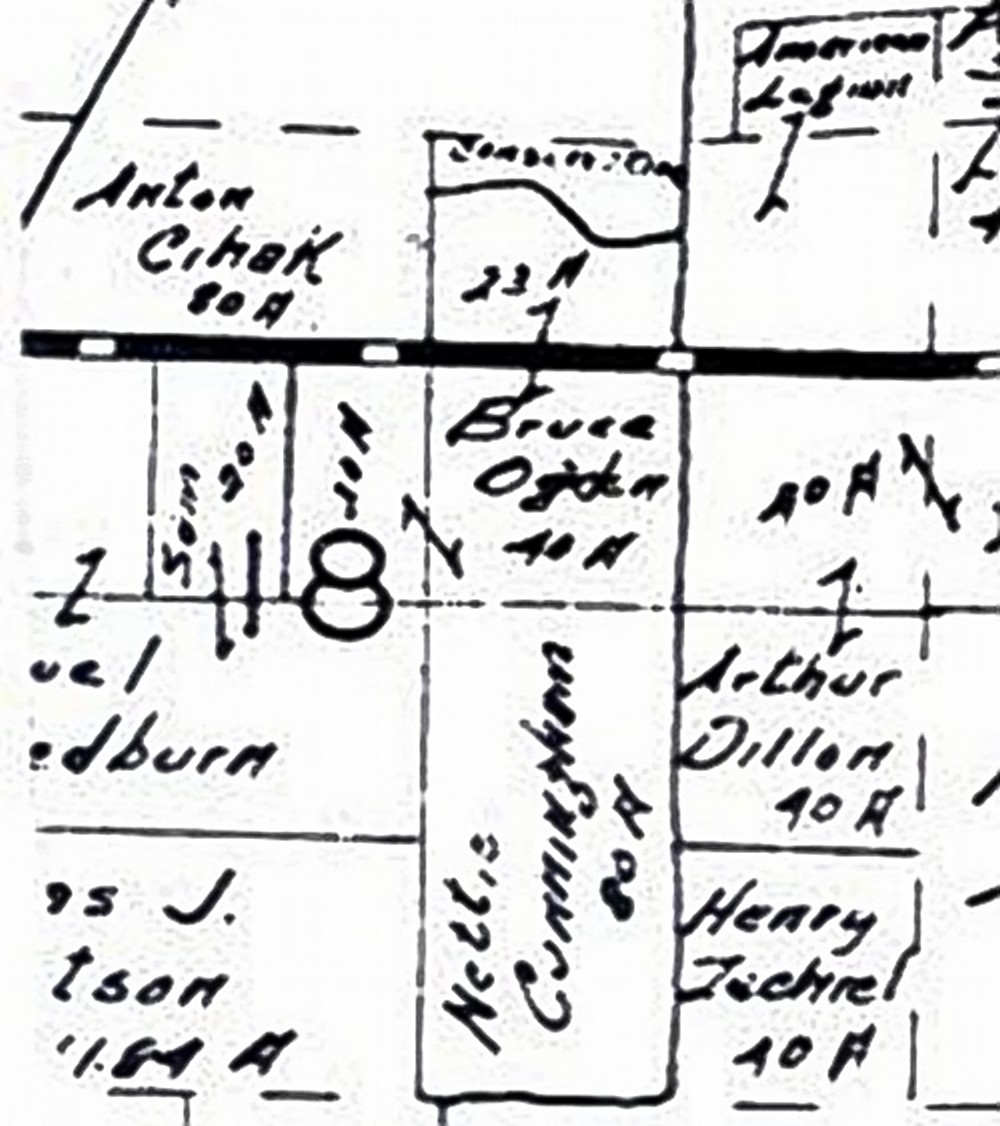 American
Legion
Anton
Cihak
80 A
23 A
Bruce
Ogden
40 A
Som
20 A
40 A
uel
edburn
Arthur
Dillon
40 A
Nettie
Cunningham
80 A
es J.
tson
1.84 A
Henry
40 A